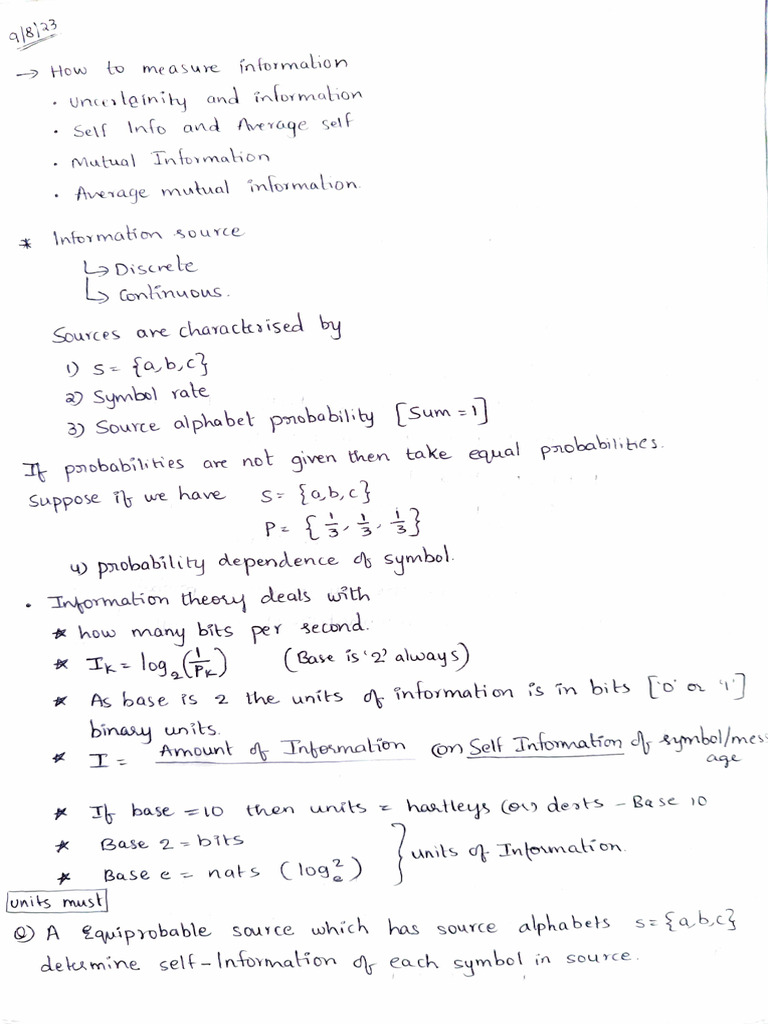 9/8/23
→ How to measure information
• Uncertainity and information
• Self Info and Average self
• Mutual Information
• Average mutual information.
* Information source
↳ Discrete
↳ Continuous.
Sources are characterised by
1) S = {a,b,c}
2) Symbol rate
3) Source alphabet probability [Sum = 1]
If probabilities are not given then take equal probabilities.
Suppose if we have S = {a,b,c}
P = {1/3, 1/3, 1/3}
4) probability dependence of symbol.
• Information theory deals with
* how many bits per second.
* I_K = log_2(1/P_K) (Base is '2' always)
* As base is 2 the units of information is in bits ['0' or '1']
binary units.
* I = Amount of Information (or) Self Information of symbol/mess
age
* If base = 10 then units = hartleys (or) derts - Base 10
* Base 2 = bits
* Base e = nats (log_e^2) } units of Information.
units must
Q) A Equiprobable source which has source alphabets s = {a,b,c}
determine self-Information of each symbol in source.